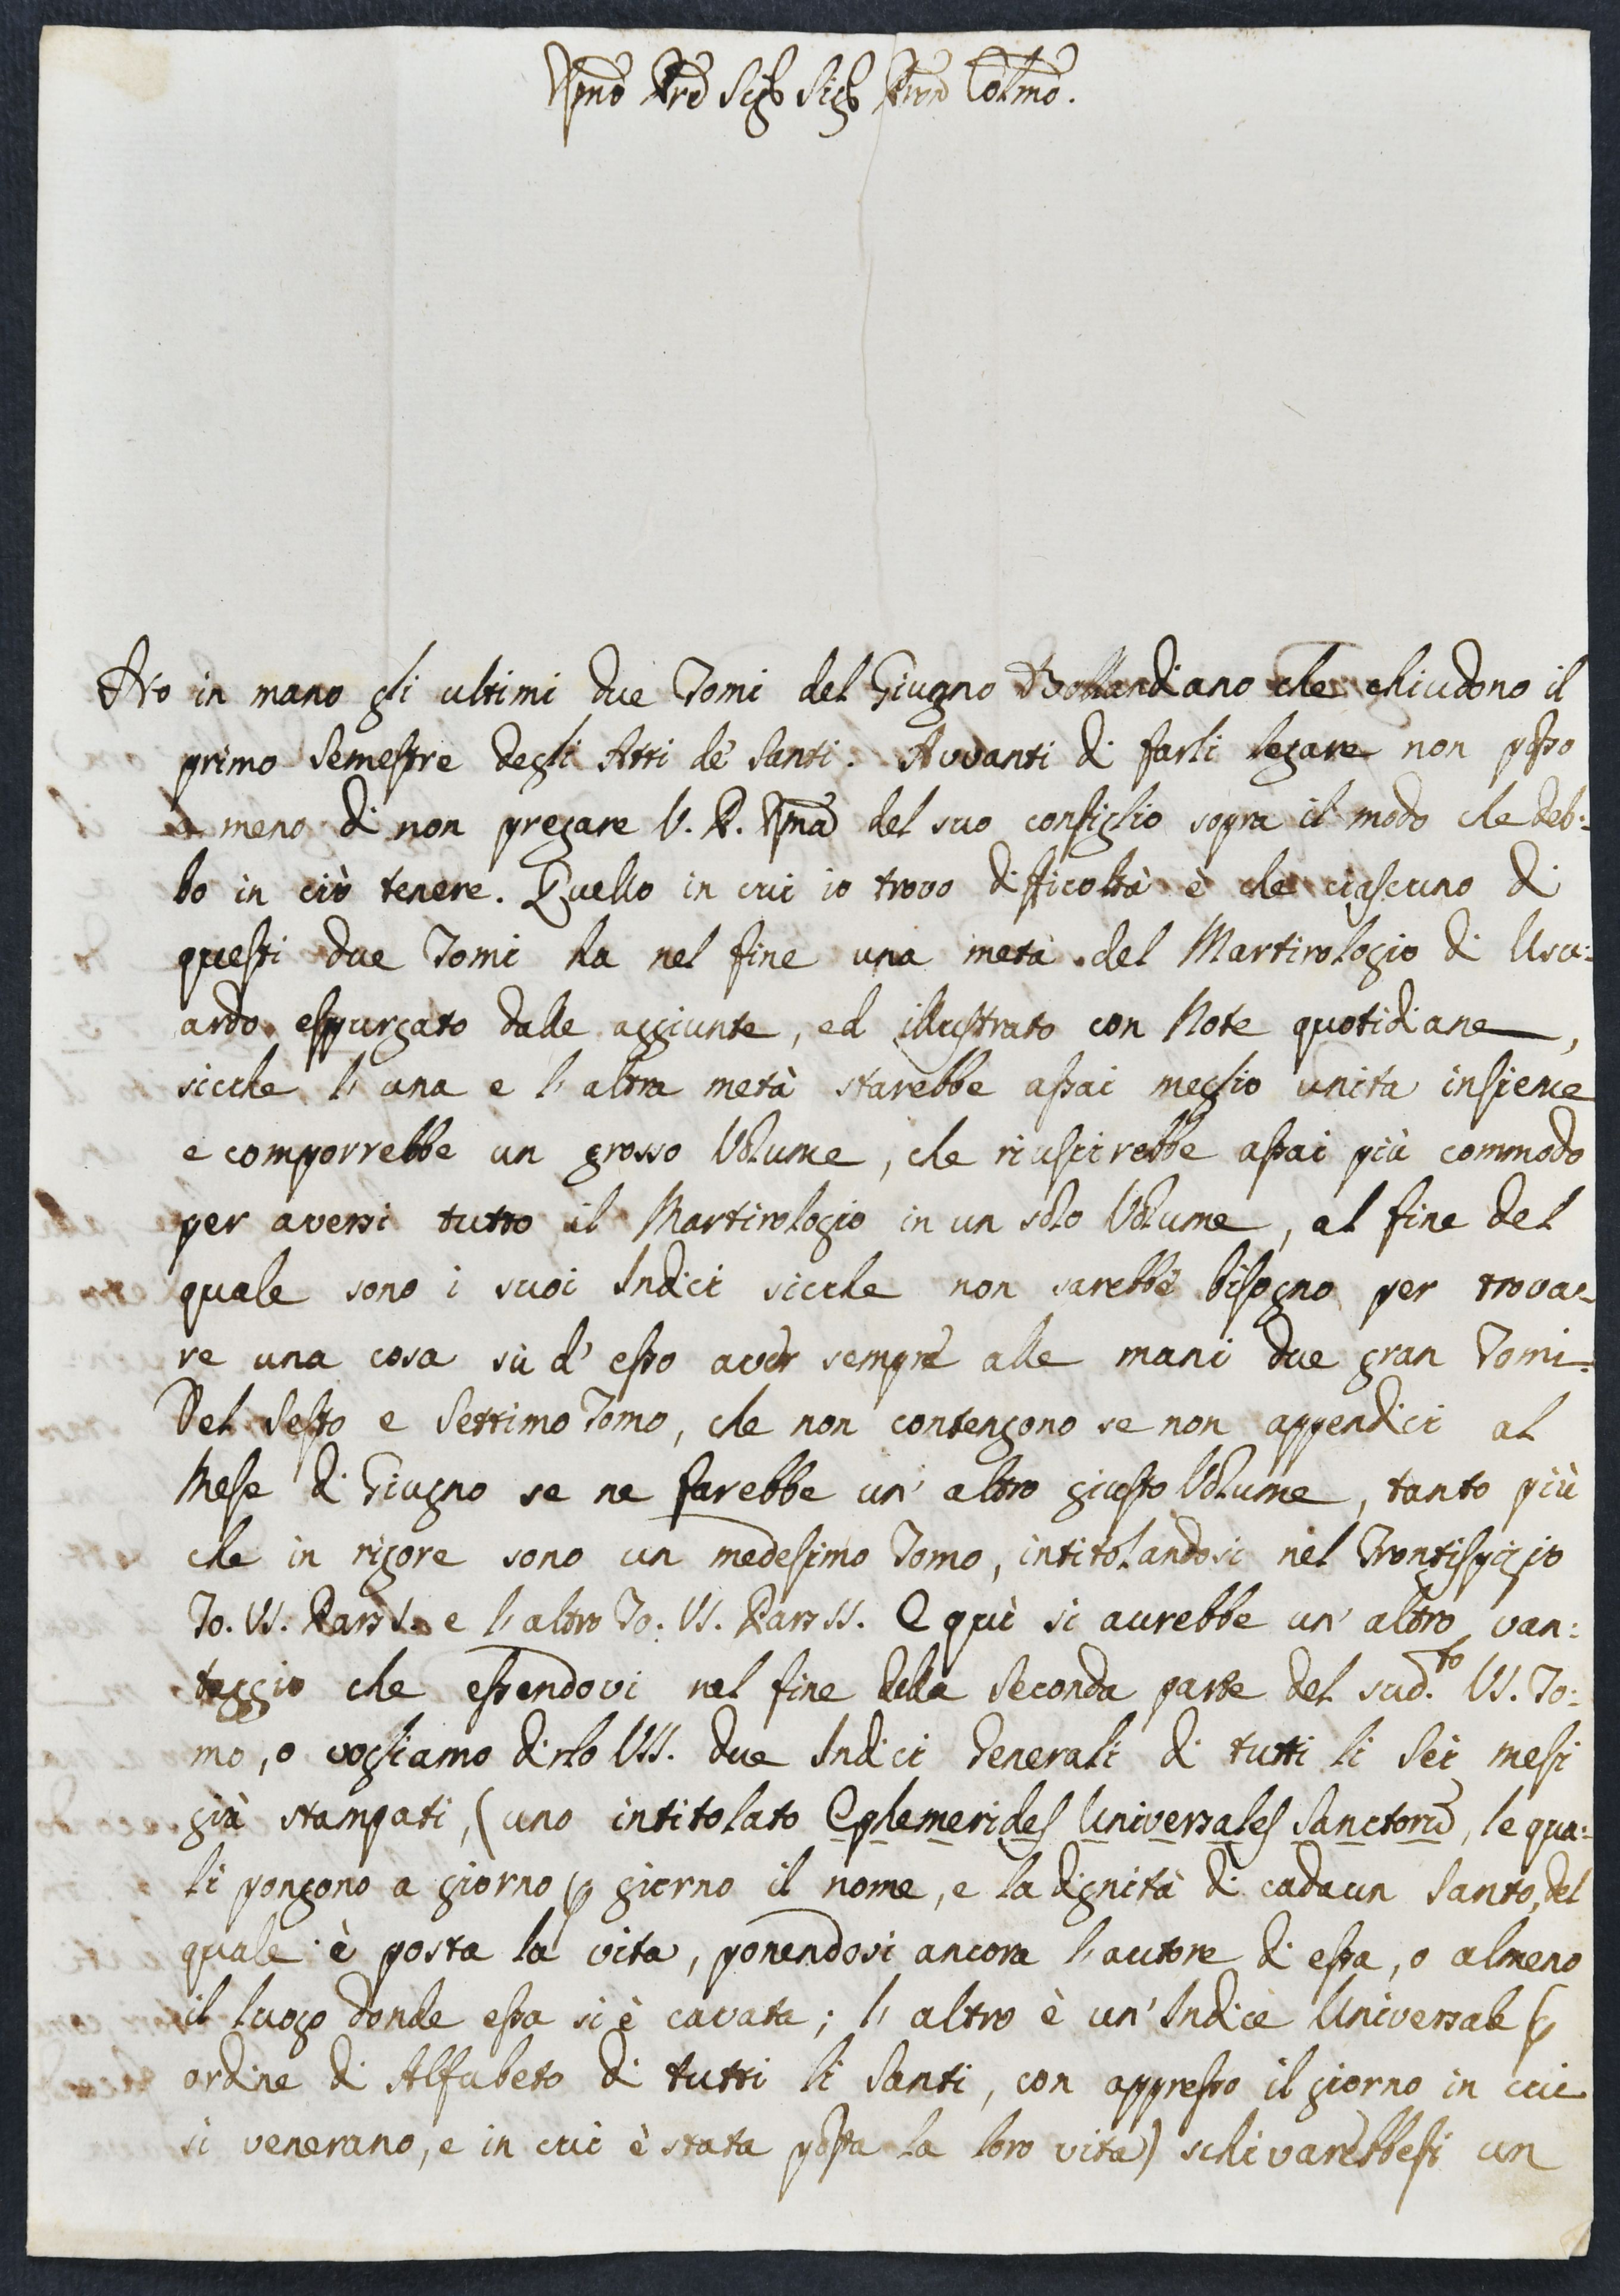 Rmo Pre Sigr Sigr Pron Colmo.
Ho in mano gli ultimi due Tomi del Giugno Bollandiano che chiudono il
primo Semestre degli Atti de' Santi. Avvanti di farli legare non posso
a meno di non pregare V. P. Rma del suo consiglio sopra il modo che deb:
bo in ciò tenere. Quello in cui io trovo difficoltà è che ciascuno di
questi due Tomi ha nel fine una metà del Martirologio di Usu:
ardo espurgato dalle aggiunte, ed illustrato con Note quotidiane,
sicche l'una e l'altra metà starebbe assai meglio unita insieme
e comporrebbe un grosso Volume, che riuscirebbe assai più commodo
per aversi tutto il Martirologio in un solo Volume, al fine del
quale sono i suoi Indici sicche non sarebbe bisogno per trova-
re una cosa sù d'esso aver sempre alle mani due gran Tomi.
Del Sesto e Settimo Tomo, che non contengono se non appendici al
Mese di Giugno se ne farebbe un' altro giusto Volume, tanto più
che in rigore sono un medesimo Tomo, intitolandosi nel Frontispizio
To. VI. Pars I. e l'altro To. VI. Pars II. E quì si aurebbe un' altro van:
taggio che essendovi nel fine della Seconda parte del sud.to VI. To:
mo, o vogliamo dirlo VII. due Indici Generali di tutti li Sei mesi
già stampati, (uno intitolato Ephemerides Universales Sanctorũ, le qua:
li pongono a giorno p giorno il nome, e la dignità di cadaun Santo, del
quale è posta la vita, ponendosi ancora l'autore di essa, o almeno
il luogo donde essa si è cavata; l'altro è un' Indice Universale p
ordine di Alfabeto di tutti li Santi, con appresso il giorno in cui
si venerano, e in cui è stata posta la loro vita) schivarebbesi un